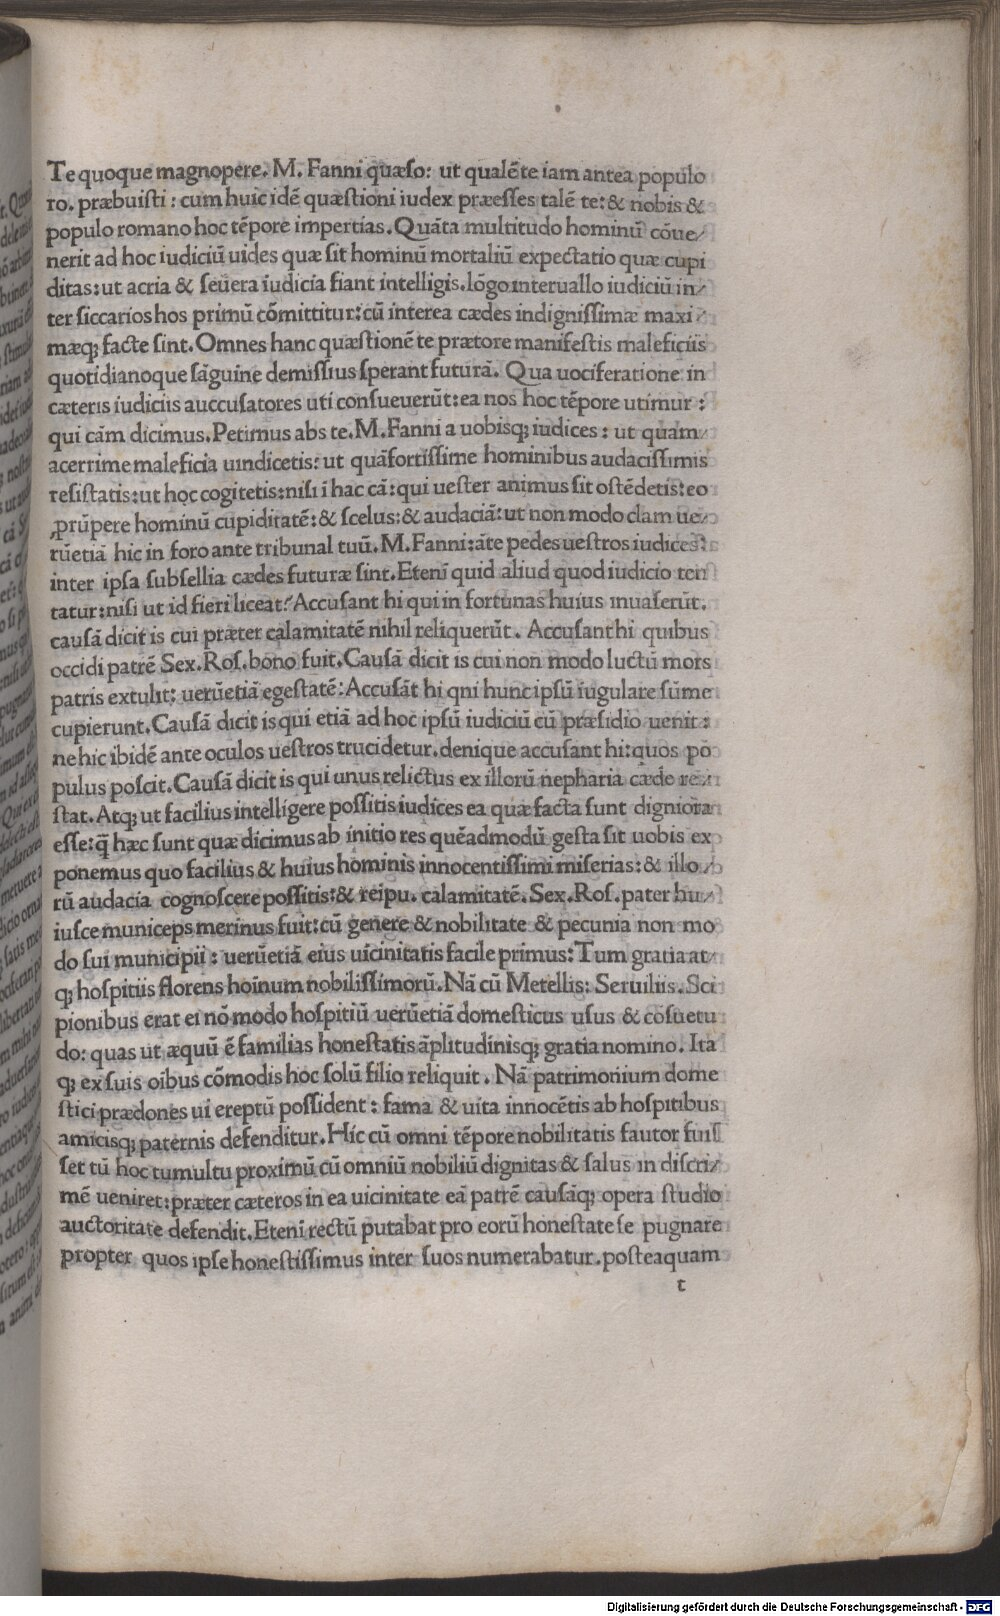 Te quoque magnopere. M. Fanni quæſo: ut qualē te iam antea populo
ro. præbuiſti : cum huic idē quæſtioni iudex præeſſes talē te: & nobis &
populo romano hoc tēpore impertias. Quāta multitudo hominū cōue⸗
nerit ad hoc iudiciū uides quæ ſit hominū mortaliū expectatio quæ cupi
ditas: ut acria & ſeuera iudicia fiant intelligis. lōgo interuallo iudiciū in⸗
ter ſiccarios hos primū cōmittitur: cū interea cædes indigniſſimæ maxi⸗
mæq; facte ſint. Omnes hanc quæſtionē te prætore manifeſtis maleficiis
quotidianoque ſāguine demiſſius ſperant futurā. Qua uociferatione in
cæteris iudiciis auccuſatores uti conſueuerūt: ea nos hoc tēpore utimur :
qui cām dicimus. Petimus abs te. M. Fanni a uobisq; iudices : ut quam⸗
acerrime maleficia uindicetis: ut quāfortiſſime hominibus audaciſſimis
reſiſtatis: ut hoc cogitetis: niſi ī hac cā: qui ueſter animus ſit oſtēdetis: eo
ꝓrūpere hominū cupiditatē: & ſcelus: & audaciā: ut non modo clam ue⸗
rūetiā hic in foro ante tribunal tuū. M. Fanni: āte pedes ueſtros iudices:
inter ipſa ſubſellia cædes futuræ ſint. Etenī quid aliud quod iudicio ten
tatur: niſi ut id fieri liceat? Accuſant hi qui in fortunas huius inuaſerūt.
cauſā dicit is cui præter calamitatē nihil reliquerūt. Accuſant hi quibus
occidi patrē Sex. Roſ. bono fuit. Cauſā dicit is cui non modo luctū mors
patris extulit: uerūetiā egeſtatē: Accuſāt hi qni hunc ipſū iugulare ſūme
cupierunt. Cauſā dicit is qui etiā ad hoc ipſū iudiciū cū præſidio uenit :
ne hic ibidē ante oculos ueſtros trucidetur. denique accuſant hi: quos po
pulus poſcit. Cauſā dicit is qui unus relictus ex illorū nepharia cæde re⸗
ſtat. Atq; ut facilius intelligere poſſitis iudices ea quæ facta ſunt digniora
eſſe: q̄ hæc ſunt quæ dicimus ab initio res quēadmodū geſta ſit uobis ex
ponemus quo facilius & huius hominis innocentiſſimi miſerias: & illo⸗
rū audacia cognoſcere poſſitis: & reipu. calamitatē. Sex. Roſ. pater hu⸗
iuſce municeps merinus fuit: cū genere & nobilitate & pecunia non mo
do ſui municipii : uerūetiā eius uicinitatis facile primus: Tum gratia at⸗
q; hoſpitiis florens hoīnum nobiliſſimorū. Nā cū Metellis: Seruiliis. Sci
pionibus erat ei nō modo hoſpitiū uerūetiā domeſticus uſus & cōſuetu
do: quas ut æquū ē familias honeſtatis āplitudinisq; gratia nomino. Ita
q; ex ſuis oībus cōmodis hoc ſolū filio reliquit. Nā patrimonium dome
ſtici prædones ui ereptū poſſident : fama & uita innocētis ab hoſpitibus
amicisq; paternis defenditur. Hic cū omni tēpore nobilitatis fautor fuiſ
ſet tū hoc tumultu proximū cū omniū nobiliū dignitas & ſalus in diſcri⸗
mē ueniret: præter cæteros in ea uicinitate eā patrē cauſāq; opera ſtudio
auctoritate defendit. Etenī rectū putabat pro eorū honeſtate ſe pugnare
propter quos ipſe honeſtiſſimus inter ſuos numerabatur. poſteaquam
t
Digitalisierung gefördert durch die Deutsche Forschungsgemeinschaft - DFG